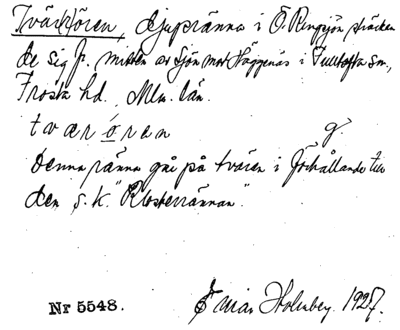 Tväröören, djupränna i Ö. Ringsjön sträcker
de sig fr. mitten av sjön mot Häggenäs i Fulltofta sn.,
Frosta hd. Mlm. län.
tværören g.
Denna ränna går på tvären i förhållande till
den s.k. "Klosterrännan".
Nr 5548. Holmberg. 1927.